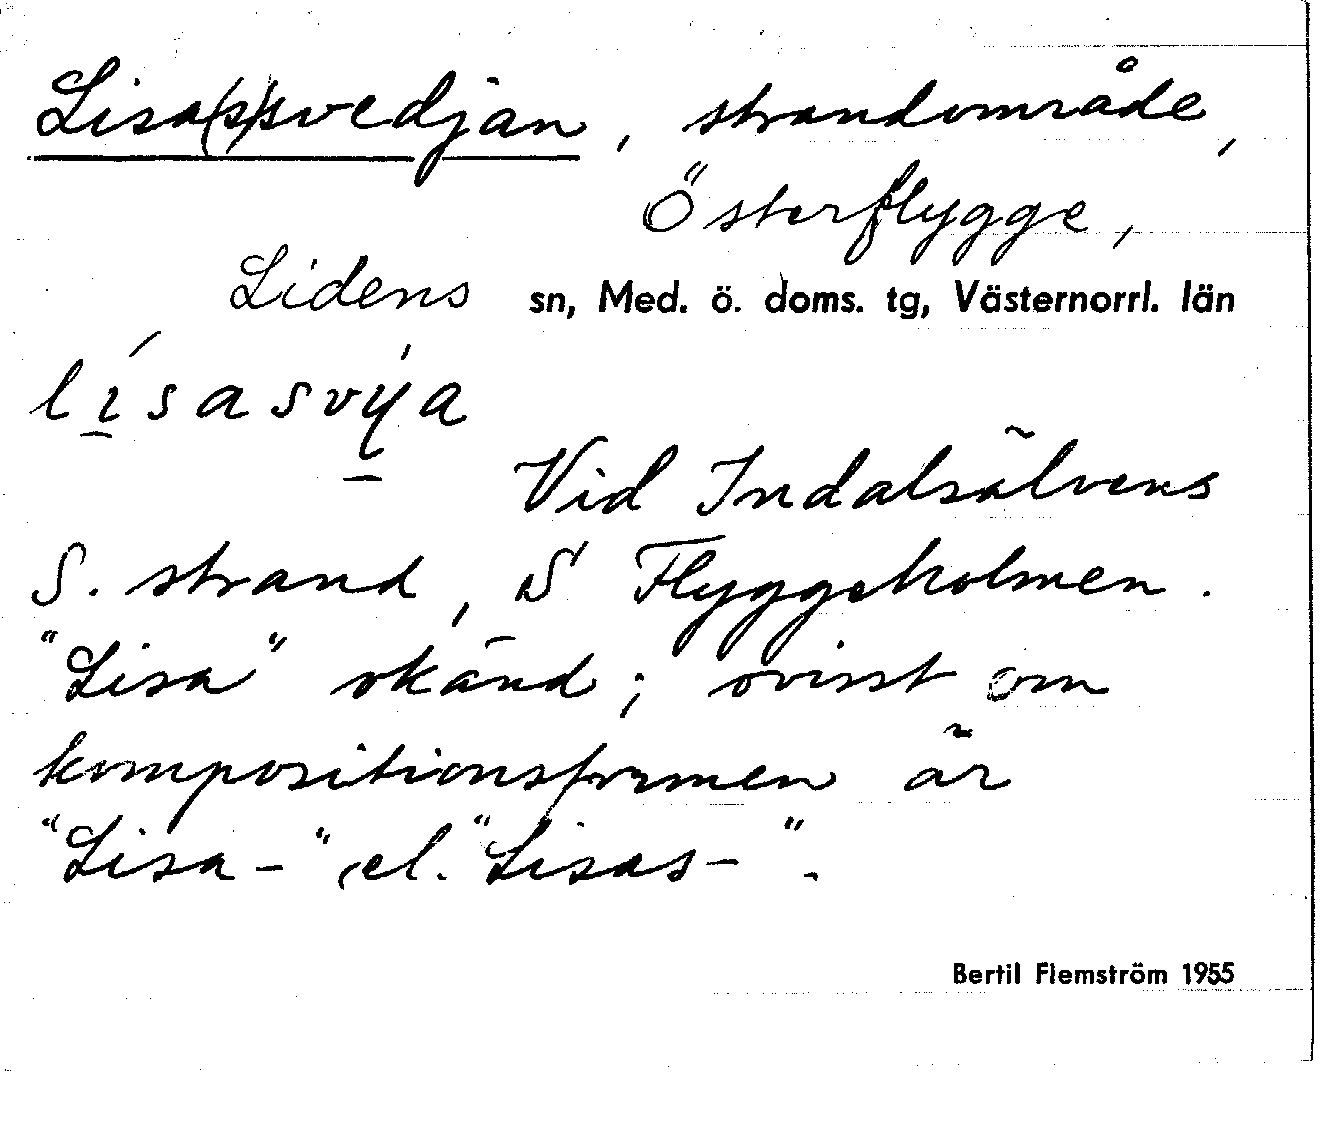 Lisa(s)svedjan, strandområde,
Österflygge,
Lidens sn, Med. ö. doms. tg, Västernorrl. län
lísasvýa
Vid Indalsälvens
S. strand, S Flyggeholmen.
"Lisa" okänd; ovisst om
kompositionsformen är
"Lisa-" el. "Lisas-".
Bertil Flemström 1955